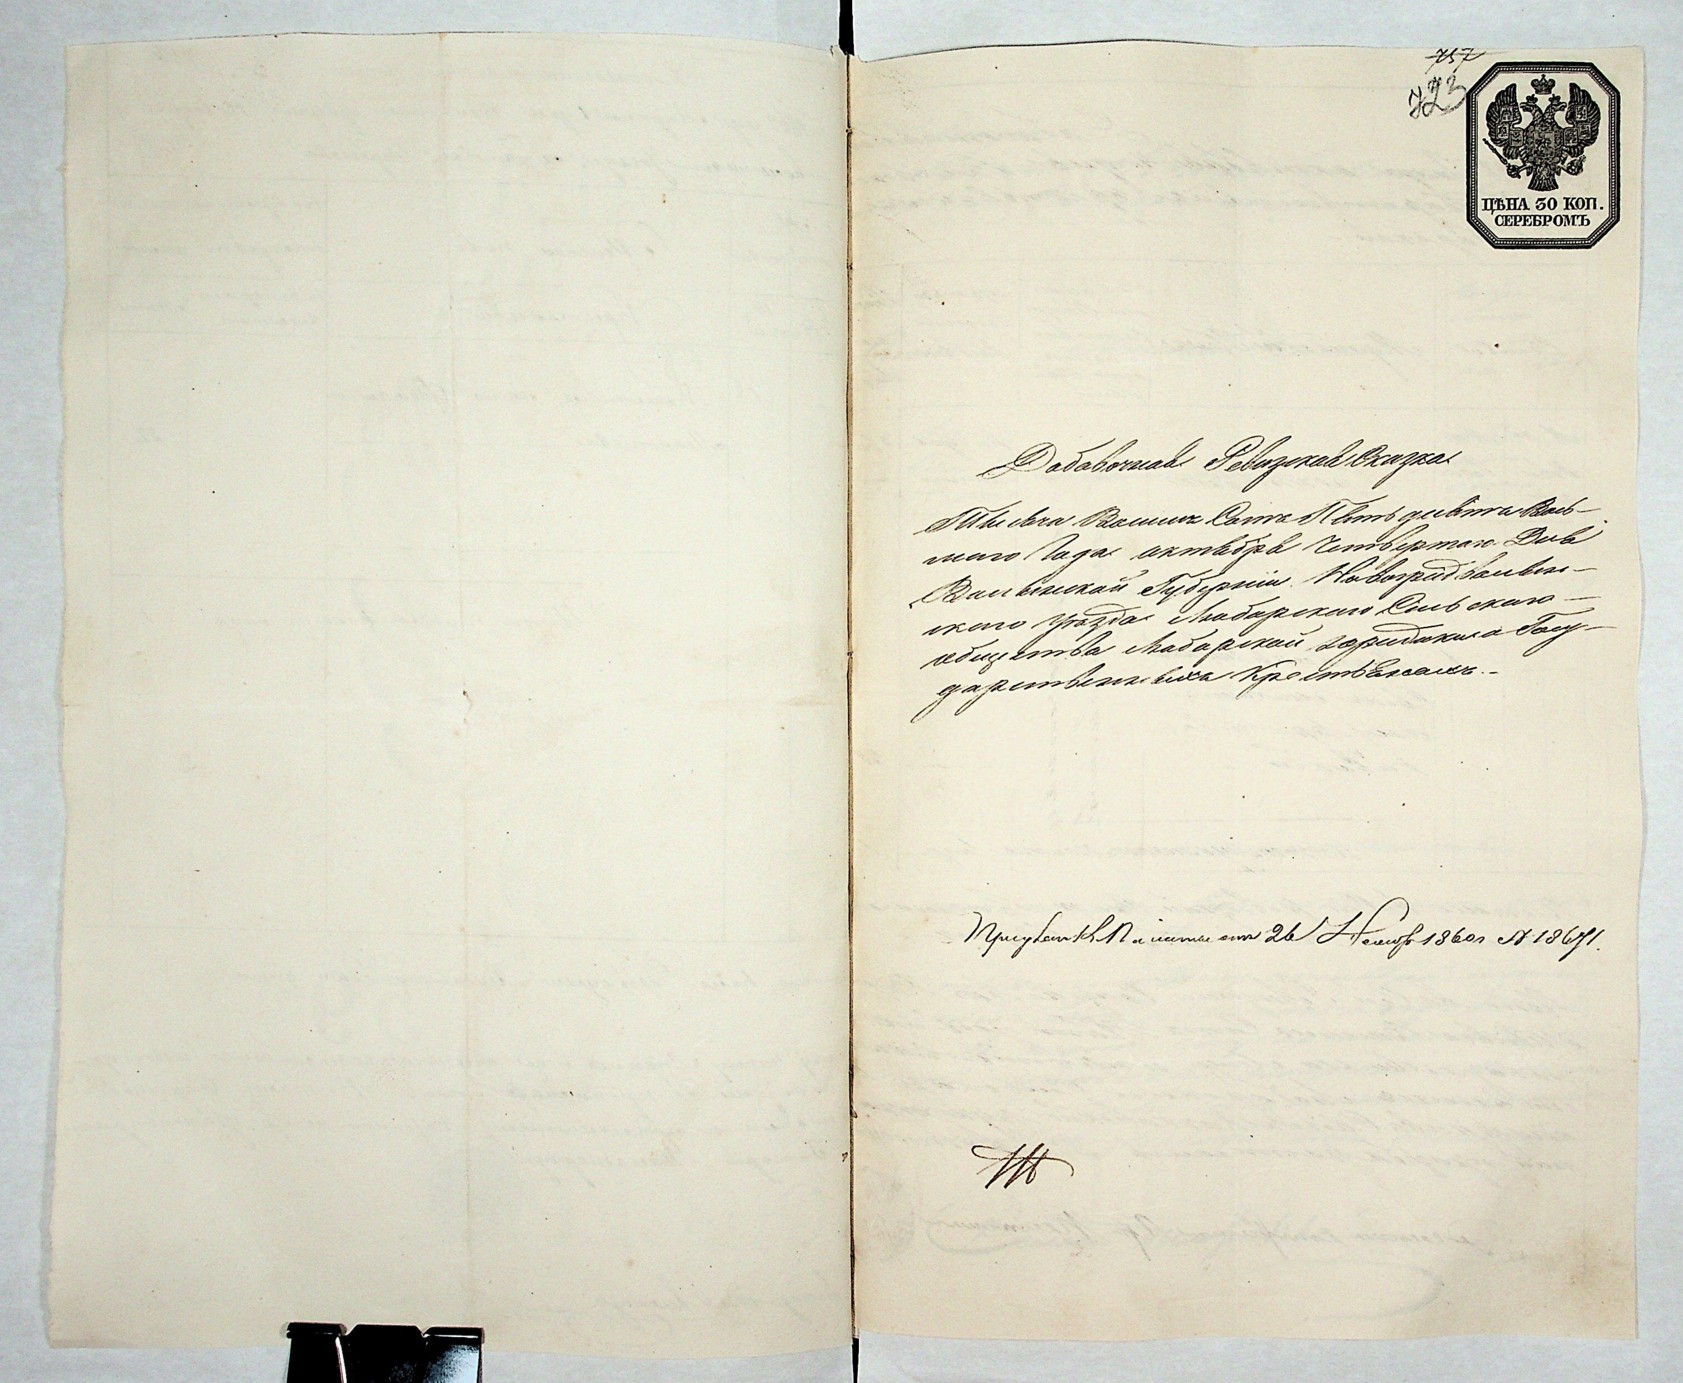 757
723
ЦѢНА 30 КОП.
СЕРЕБРОМЪ
Добавочная Ревизская Сказка
Тысяча Восемь Сотъ Пятьдесятъ Вось-
маго Года октября Четвертаго Дня
Волынской Губерніи Новоградволын-
скаго уѣзда Любарскаго Сельскаго
общества Любарской юридики о Госу-
дарственныхъ Крестьянахъ.-
При указѣ Палаты отъ 26 Ноября 1860 г № 13671.